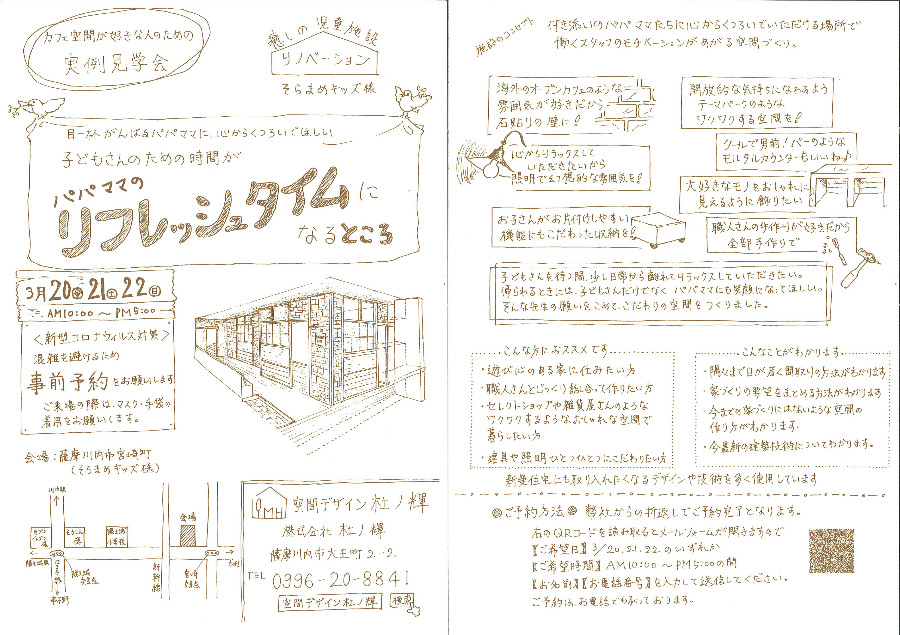 カフェ空間が好きな人のための
実例見学会
癒しの児童施設
リノベーション
そらまめキッズ様
月一久々がんばるパパママに、心からくつろいでほしい
子どもさんのための時間が
パパママの
リフレッシュタイムに
なるところ
3月20金21土22日
AM10:00～PM5:00
＜新型コロナウィルス対策＞
混雑を避けるため
事前予約をお願いします
ご来場の際は、マスク・手袋の
着用をお願いします。
会場：薩摩川内市宮崎町
（そらまめキッズ様）
会場
新幹線
空間デザイン杜ノ輝
株式会社 杜ノ輝
薩摩川内市大王町2-2
TEL 0996-20-8841
空間デザイン杜ノ輝 検索
施設のコンセプト
付き添いのパパママたちに心からくつろいでいただける場所で
働くスタッフのモチベーションがあがる空間づくり。
海外のオープンカフェのような
雰囲気が好きだから
石貼りの壁に！
開放的な気持ちになれるよう
テーマパークのような
ワクワクする空間を！
心からリラックスして
いただきたいから
照明で幻想的な雰囲気を！
クールで男前！バーのような
モルタルカウンターもいいね♪
大好きなモノをおしゃれに
見えるように飾りたい
お子さんがお片付けしやすい
機能にもこだわった収納を！
職人さんの手作りが好きだから
全部手作りで
子どもさんを待つ間、少し日常から離れてリラックスしていただきたい。
帰られるときには、子どもさんだけでなく パパママにも笑顔になってほしい。
そんな先生の願いをこめて、こだわりの空間をつくりました。
こんな方におススメです
・遊び心のある家に住みたい方
・職人さんとじっくり話し合って作りたい方
・セレクトショップや雑貨屋さんのような
ワクワクするようなおしゃれな空間で
暮らしたい方
・建具や照明ひとつひとつにこだわりたい方
こんなことがわかります
・隅々まで目が届く間取りの方法がわかります
・家づくりの希望をまとめる方法がわかります
・今までの家づくりにはないような空間の
作り方がわかります。
・今最新の建築技術についてわかります。
新築住宅にも取り入れたくなるデザインや技術を多く使用しています
◎ご予約方法◎ 弊社からの折返しでご予約完了となります。
右のQRコードを読み取るとメールフォームが開きますので
【ご希望日】3/20.21.22のいずれか
【ご希望時間】AM10:00～PM5:00の間
【お名前】【お電話番号】を入力して送信してください。
ご予約は、お電話でも承っております。